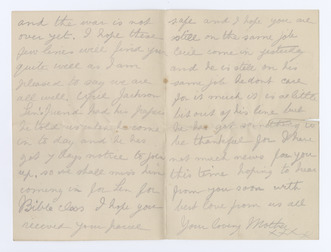 and the war is not
over yet. I hope these
few lines will find you
quite well as I am
pleased to say we are
all well. Jackson
friend had his papers
he told us when he come
in to day and he has
got 7 days notice to join
up, so we shall miss him
coming in for him for
Bible class I hope you
received your parcel
safe and I hope you are
still on the same job
come in yesterday
and he is still on his
same job he dont care
for is much it is a little
bit out of his line but
he has got something to
be thankful for I have
not much news for you
this time hoping to hear
from you soon with
best love from us all
Your Loving Mother
xxx